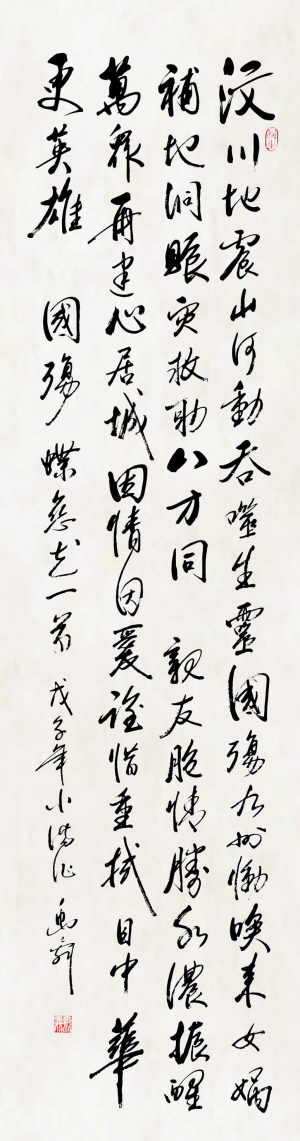 汶川地震山河動吞噬生靈國殤九州慟喚來女媧
補地洞賑災救助八方同 親友胞情勝水濃振醒
萬眾再建心居城因情因愛誰惜重拭目中華
更英雄 國殤 蝶戀花一首 戊子年小滿作